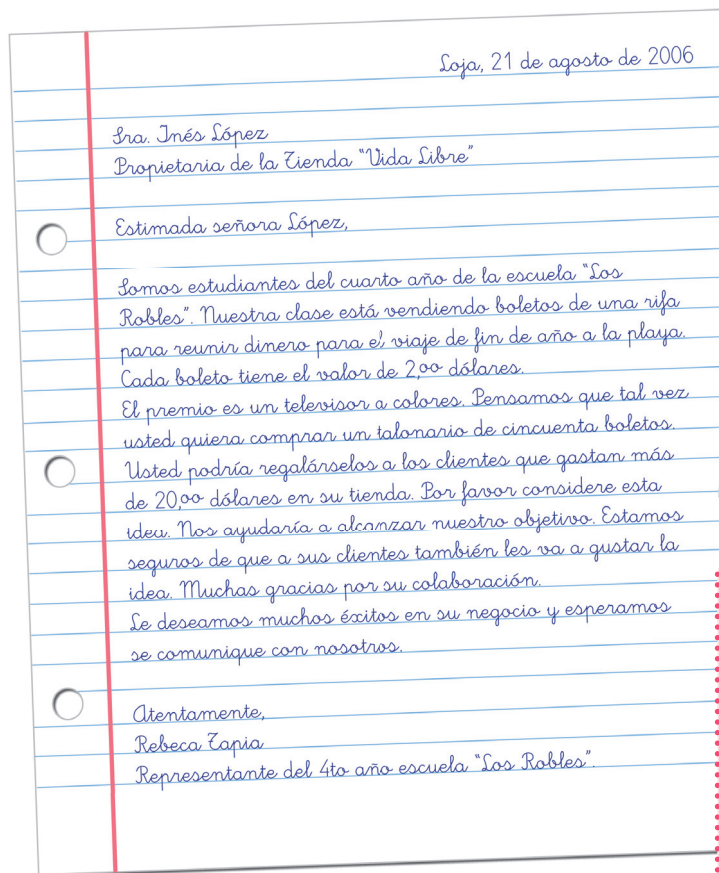 Loja, 21 de agosto de 2006
Sra. Inés López
Propietaria de la Tienda "Vida Libre"
Estimada señora López,
Somos estudiantes del cuarto año de la escuela "Los
Robles". Nuestra clase está vendiendo boletos de una rifa
para reunir dinero para el viaje de fin de año a la playa.
Cada boleto tiene el valor de 2,00 dólares.
El premio es un televisor a colores. Pensamos que tal vez
usted quiera comprar un talonario de cincuenta boletos.
Usted podría regalárselos a los clientes que gastan más
de 20,00 dólares en su tienda. Por favor considere esta
idea. Nos ayudaría a alcanzar nuestro objetivo. Estamos
seguros de que a sus clientes también les va a gustar la
idea. Muchas gracias por su colaboración.
Le deseamos muchos éxitos en su negocio y esperamos
se comunique con nosotros.
Atentamente,
Rebeca Tapia
Representante del 4to año escuela "Los Robles".